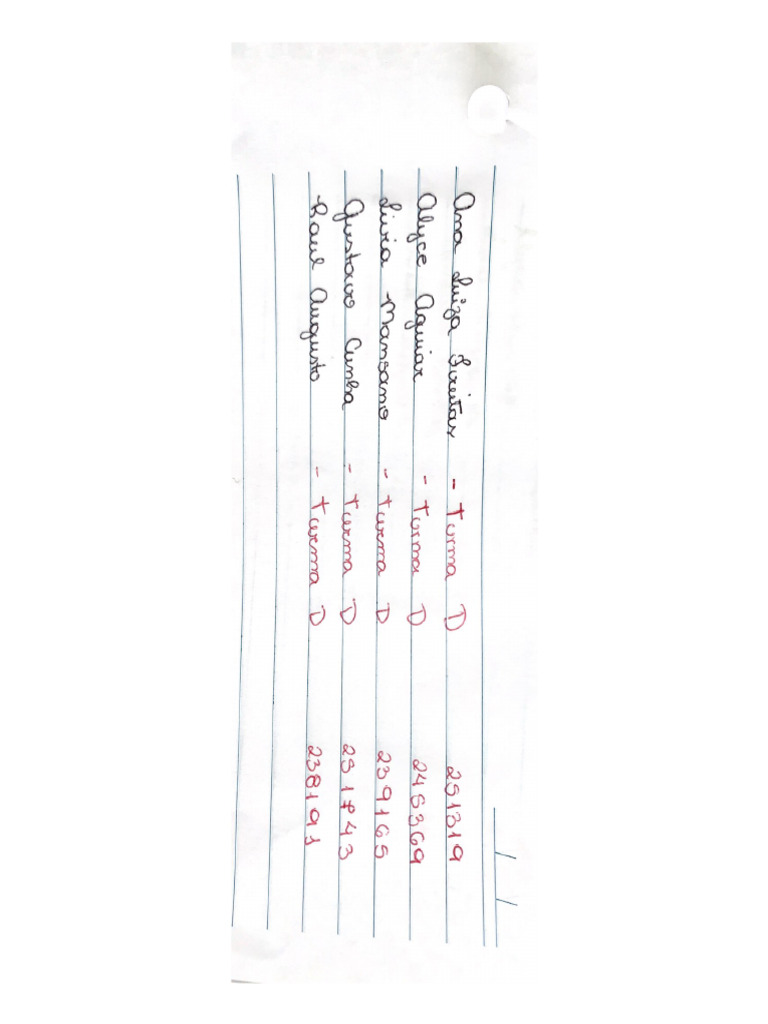 Ana Luiza Freitas - Turma D 251319
Alyce Aguiar - Turma D 245369
Livia Mansano - Turma D 239165
Gustavo Cunha - Turma D 251743
Raul Augusto - Turma D 238191